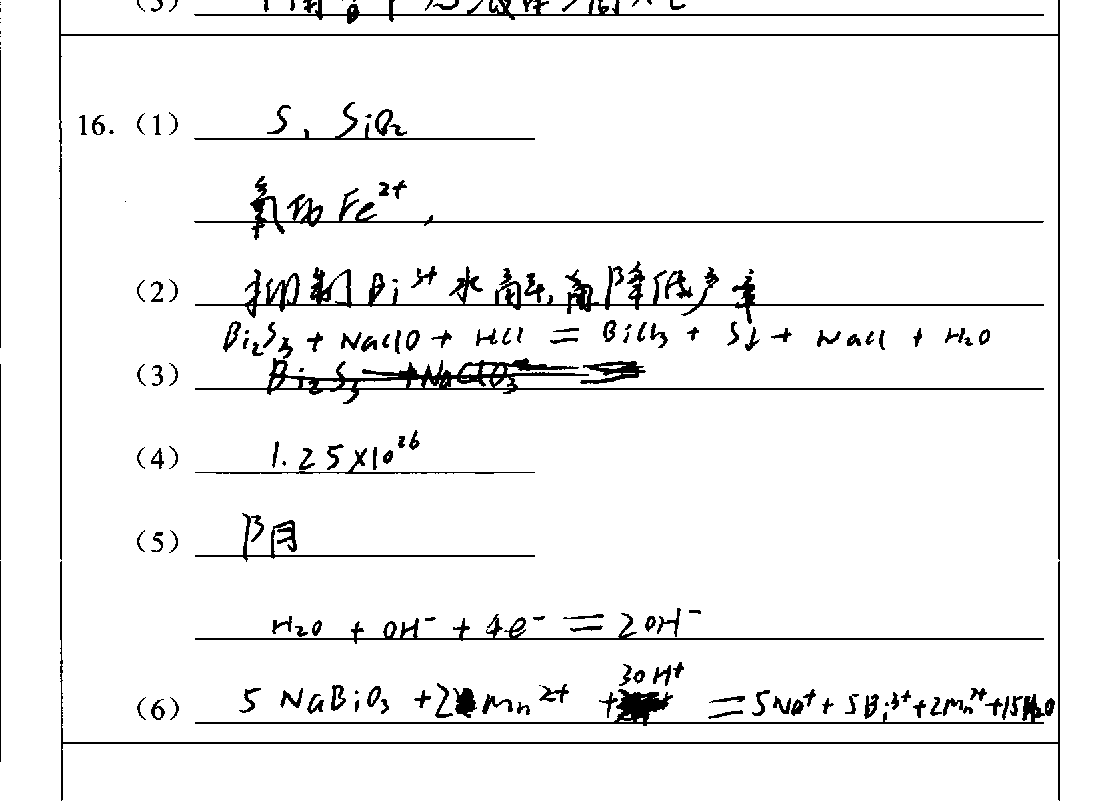 16.（1） S、SiO₂
氧化 Fe²⁺,
（2） 抑制 Bi³⁺ 水解, 降低产率
Bi₂S₃ + NaClO + HCl = BiCl₃ + S↓ + NaCl + H₂O
（3） Bi₂S₃ + NaClO₃ =
（4） 1.25×10²⁶
（5） 阴
H₂O + OH⁻ + 4e⁻ = 2OH⁻
（6） 5 NaBiO₃ + 2 Mn²⁺ + 30H⁺ = 5Na⁺ + 5Bi³⁺ + 2Mn²⁺ + 15H₂O